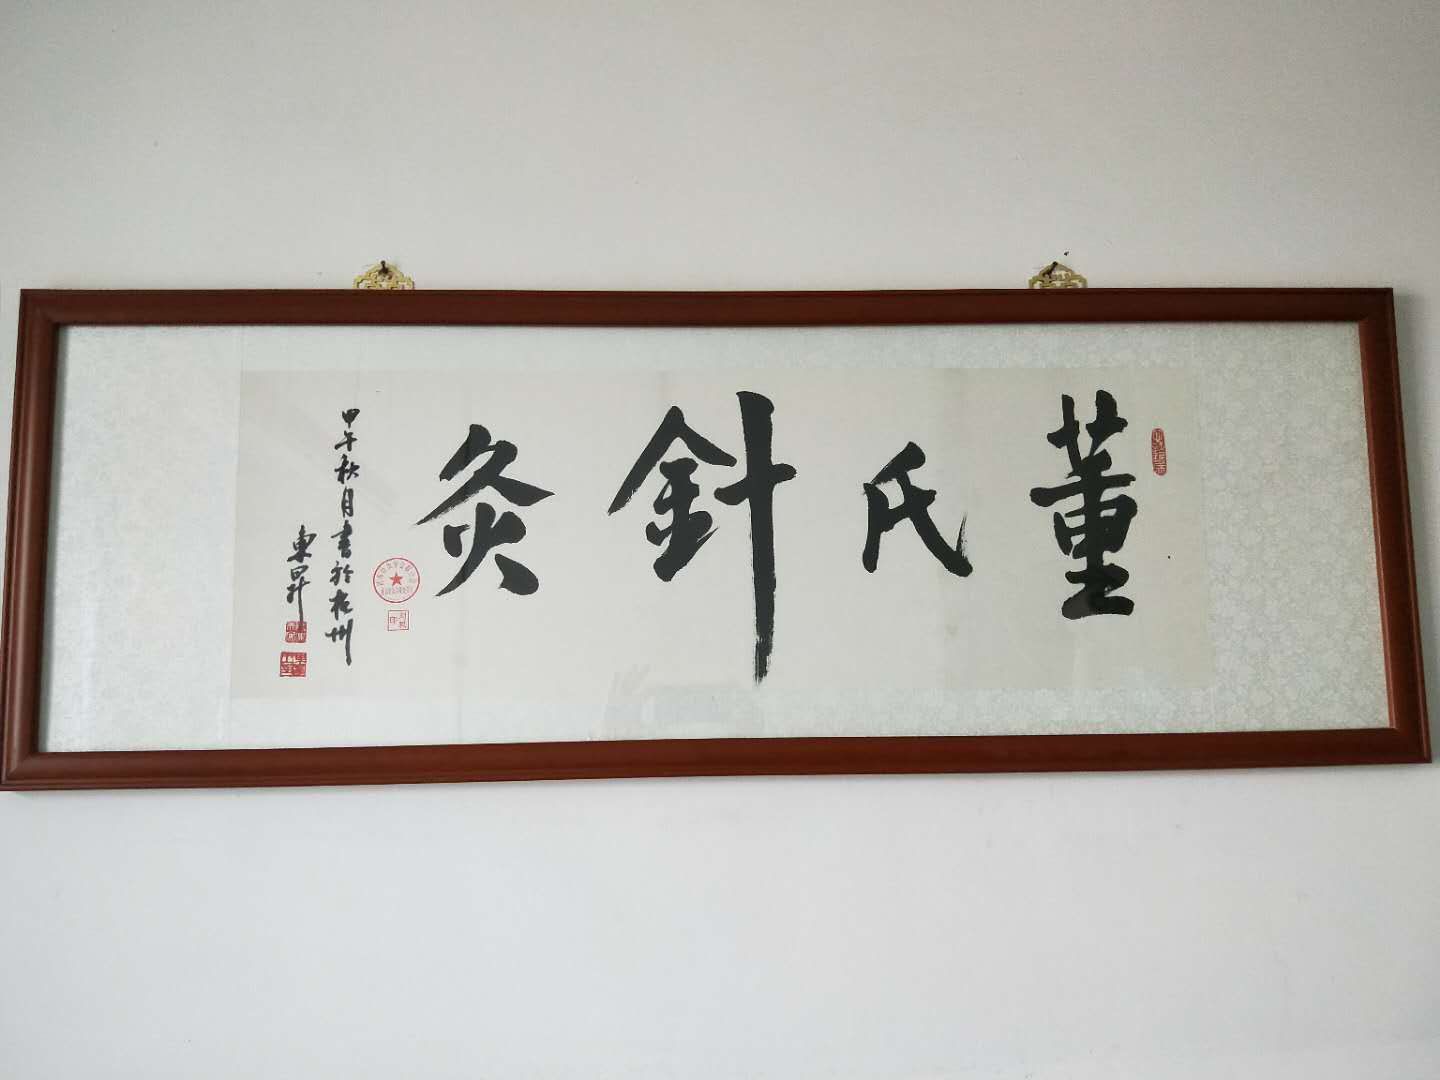 董氏針灸
甲午秋月書於杭州
東昇